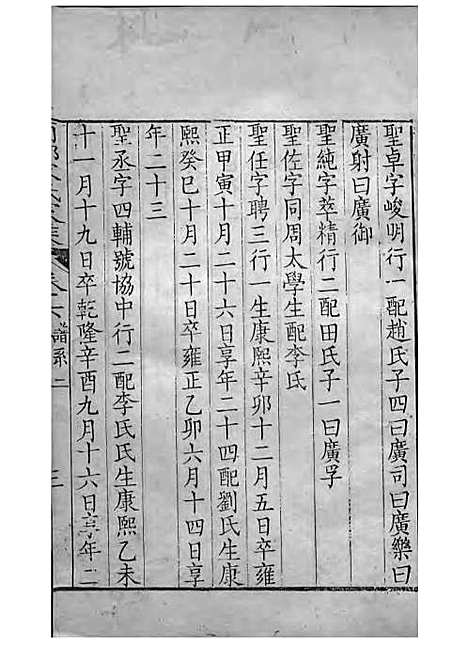 聖卓字峻明行一配趙氏子四曰廣司曰廣樂曰
廣射曰廣御
聖純字萃精行二配田氏子一曰廣孚
聖佐字同周太學生配李氏
聖任字聘三行一生康熙辛卯十二月五日卒雍
正甲寅十月二十六日享年二十四配劉氏生康
熙癸巳十月二十日卒雍正乙卯六月十四日享
年二十三
聖丞字四輔號協中行二配李氏氏生康熙乙未
十一月十九日卒乾隆辛酉九月十六日享年二
譜系二
三